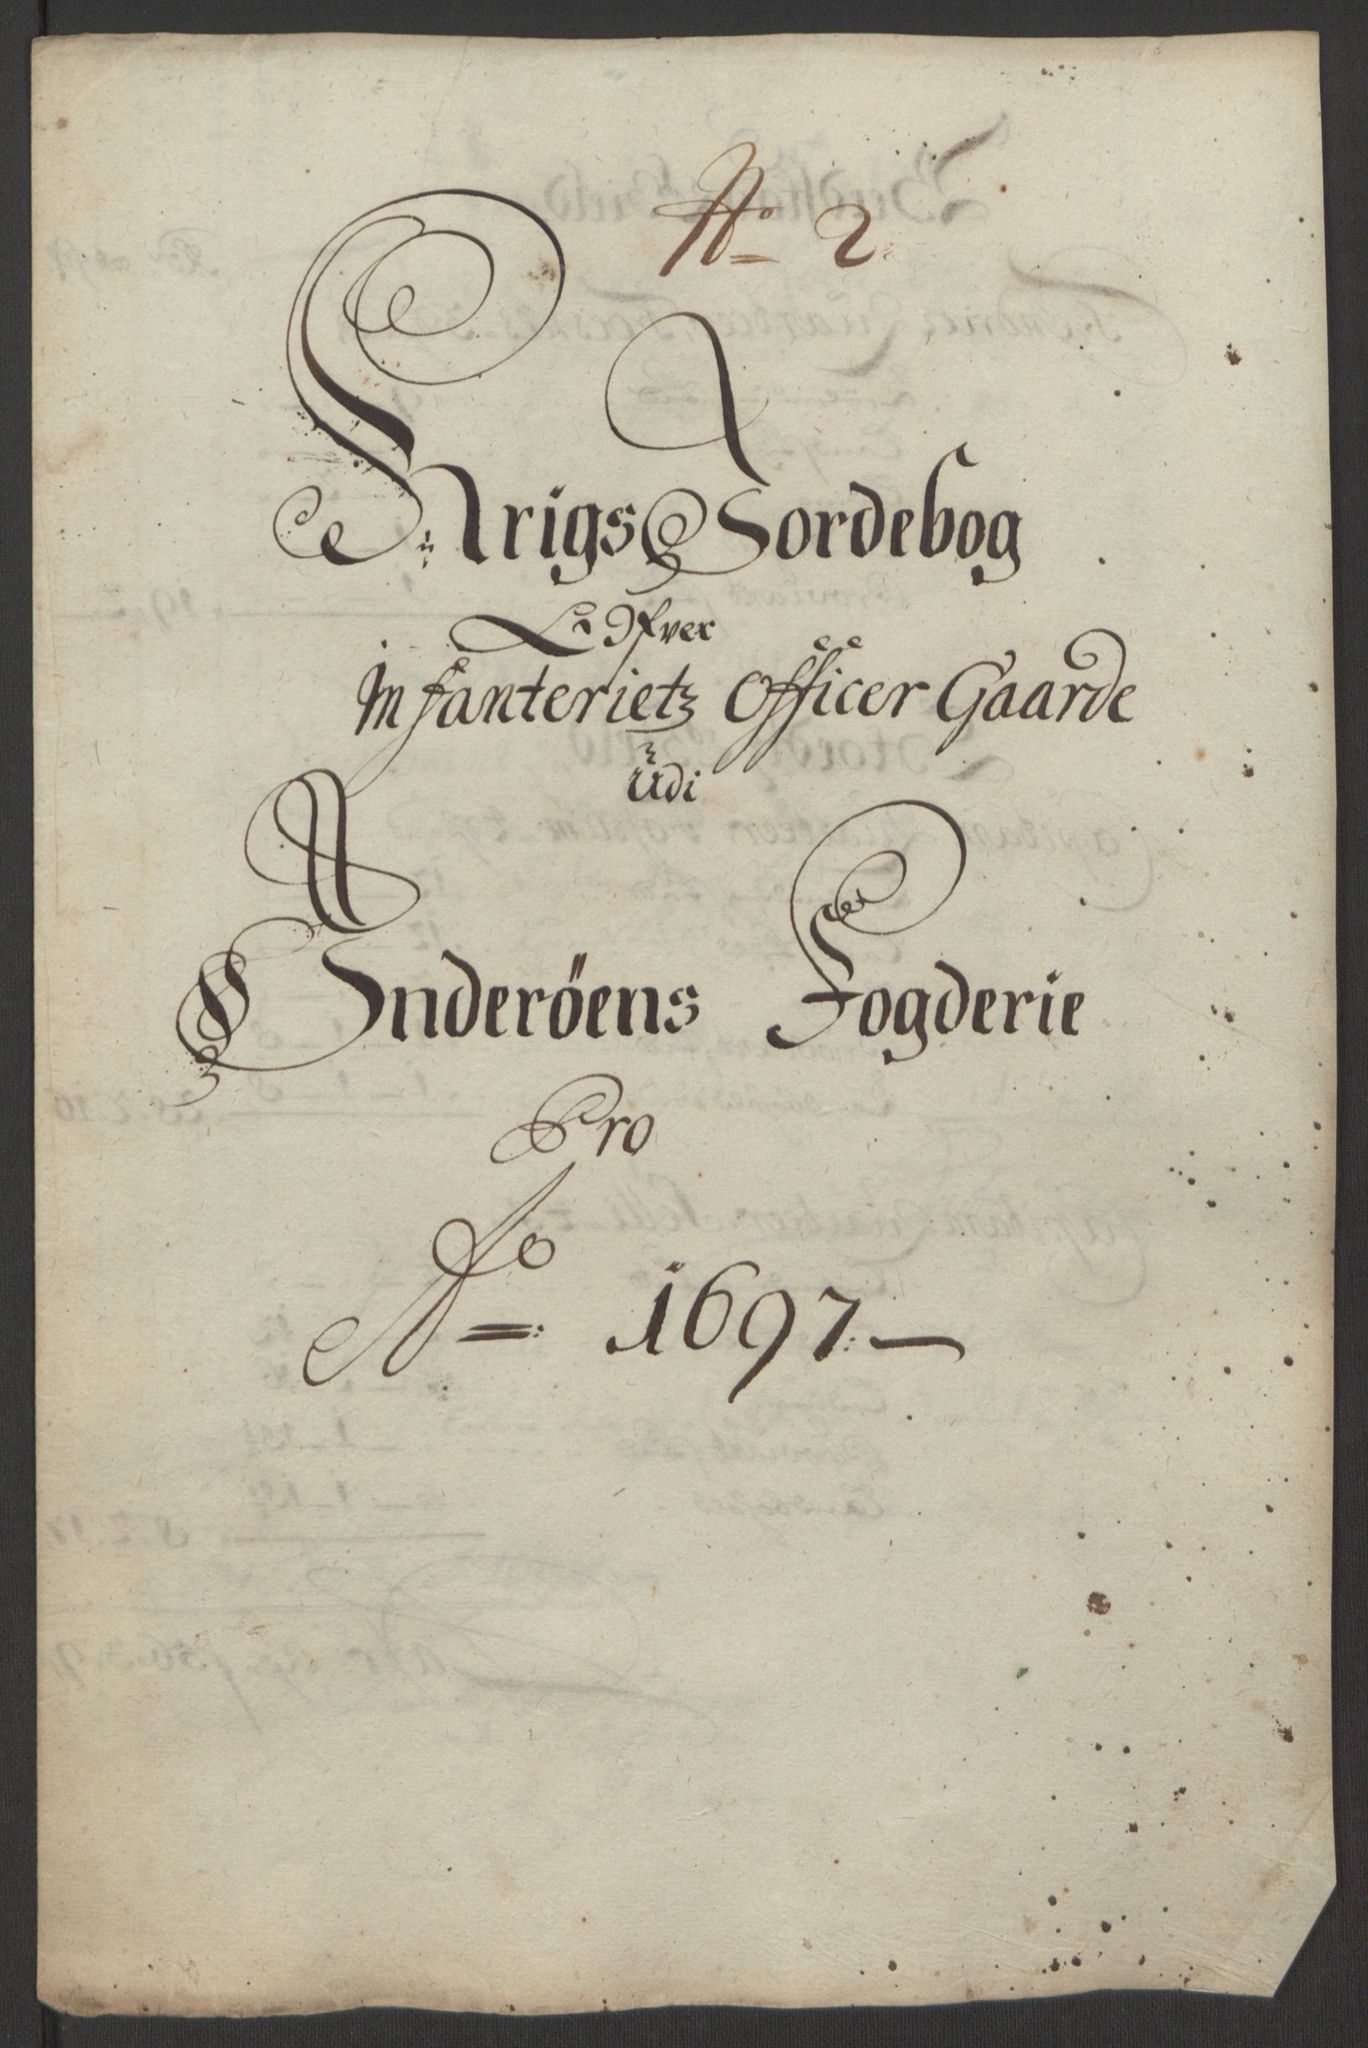 No 2
Krigs Jordebog
Ofver
Infanterietz Officer Gaarde
udi
Inderöens Fogderie
Pro
Ao 1697